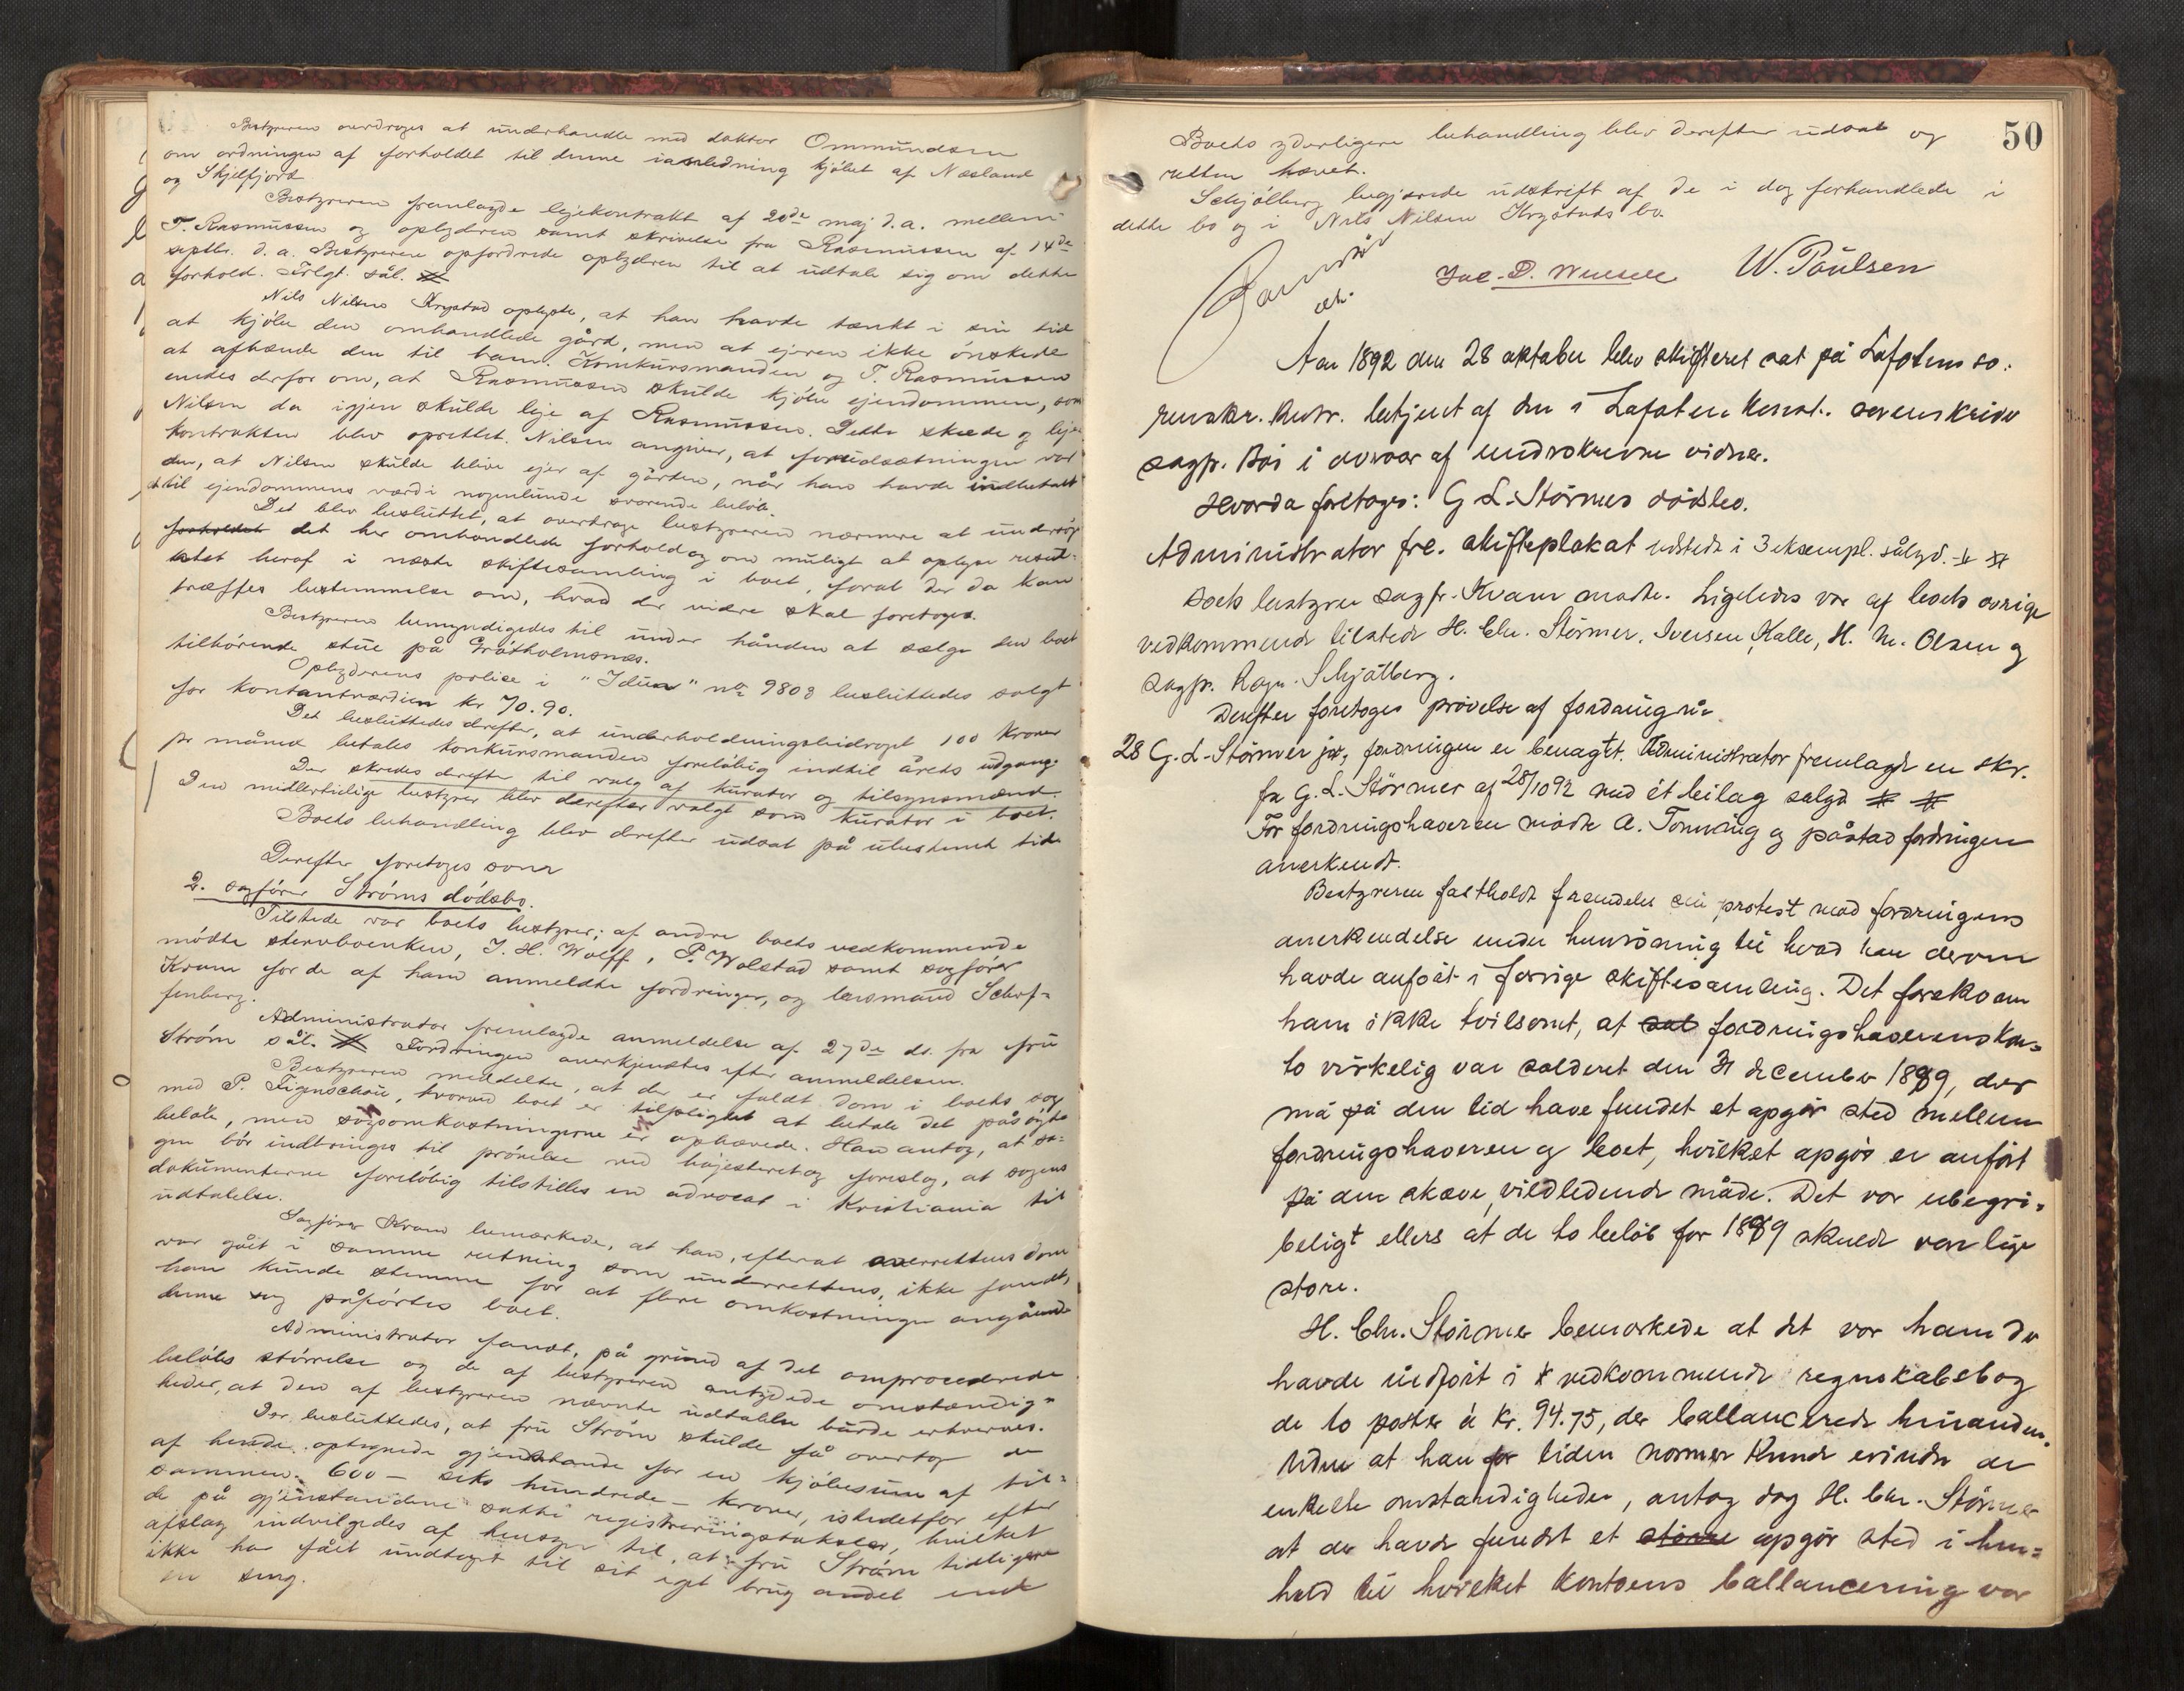 Bestyreren overdroges at underhandle med doktor Ommundsen
om ordningen af forholdet til denne i anledning kjøbet af Næsland
og Skjelfjord
Bestyreren fremlagde lejekontrakt af 20de maj d.a. mellem
T. Rasmussen og oplyderen samt skrivelse fra Rasmussen af 14de
septbr. d.a. Bestyreren opfordrede oplyderen til at udtale sig om dette
forhold. Frlgt. sål.
Nils Nilsen Krystad oplyste, at han havde tænkt i sin tid
at kjøbe den omhandlede gård, men at ejeren ikke ønskede
at afhænde den til ham. Konkursmanden og T. Rasmussen
enedes derfor om, at Rasmussen skulde kjøbe ejendommen, som
Nilsen da igjen skulde leje af Rasmussen. Dette skede og leje
kontrakten blev oprettet. Nilsen angiver, at forudsætningen var
den, at Nilsen skulde blive ejer af gården, når han havde indbetalt
et til ejendommens værdi nogenlunde svarende beløb.
Det blev besluttet, at overdrage bestyreren nærmere at undersøge
forholdet det her omhandlede forhold og om muligt at oplyse resul-
tatet heraf i næste skiftesamling i boet, forat der da kan
træffes bestemmelse om, hvad der videre skal foretages.
Bestyreren bemyndigedes til under hånden at sælge den boet
tilhørende stue på Gråtholmsnæs.
Oplyderens polise i "Idun" no 9808 besluttedes solgt
for kontantværdien kr 70.90.
Det besluttedes derefter, at underholdningsbidraget 100 kroner
pr måned betales konkursmanden foreløbig indtil årets udgang.
Der skredes derefter til valg af kurator og tilsynsmænd.
Den midlertidige bestyrer blev derefter valgt som kurator i boet.
Boets behandling blev derefter udsat på ubestemt tid
Derefter foretoges som
2. sagfører Strøms dødsbo.
Tilstede var boets bestyrer; af andre boets vedkommende
mødte stervboenken, J. H. Wolff, P. Wolstad samt sagfører
Kram for de af ham anmeldte fordringer, og lensmand Schef-
fenberg.
Administrator fremlagde anmeldelse af 27de ds. fra fru
Strøm sål. Fordringen anerkjendtes efter anmeldelsen.
Bestyreren meddelte, at der er faldt dom i boets sag
mod P. Figenschou, hvorved boet er tilpligtet at betale det påsøgte
beløb, men sagsomkostningerne er ophævede. Han antog, at sa-
gen bør indbringes til prøvelse ved højesteret og foreslog, at sagens
dokumenterne foreløbig tilstilles en advocat i Kristiania til
udtalelse.
Sagfører Kram bemærkede, at han, efterat overrettens dom
var gået i samme retning som underrettens, ikke fandt,
han kunde stemme for at flere omkostninger angående
denne sag påførtes boet.
Administrator fandt, på grund af det omprocederede
beløbs størrelse og de af bestyreren antydede omstændig-
heder, at den af bestyreren nævnte udtalelse burde erhverves.
Der besluttedes, at fru Strøm skulde få overtage de
af hende optegnede gjenstande for en kjøbesum af til-
sammen 600 - seks hundrede - kroner, istedetfor efter
de på gjenstandene satte registreringstakster, hvilket
afslag indvilgedes af hensyn til, at fru Strøm tidligere
ikke har fået undtaget til sit eget brug andet end
en seng.
50
Boets yderligere behandling blev derefter udsat og
retten hævet.
Schjølberg begjærede udskrift af de i dag forhandlede i
dette bo og i Nils Nilsen Krystads bo.
W. Poulsen
Aar 1892 den 28 oktober blev skifteret sat på Lofotens so-
renskr. kontr. betjent af den i Lofoten konst. sorenskriver
sagfr. Boi i overvær af undertegnede vidner.
Hvorda foretoges: G L. Störmers dödsbo.
Administrator fre. skifteplakat udsted i 3 eksempl. sålyd.
Boets bestyrer sagfr. Kram mødte. Ligeledes var af boets øvrige
vedkommende tilstede H. Chr. Störmer, Iversen, Kalle, H. M. Olsen og
sagfr. Ragn. Schjölberg.
Derefter foretoges prövelse af fordringer.
28 G. L. Störmer jr, fordringen er benægtet. Administrator fremlagde en skr.
fra G. L. Störmer af 28/10 92 med ét bilag salyd
For fordringshaveren mødte A. Tonning og påstod fordringen
anerkendt.
Bestyreren fastholdt fremdeles sin protest mod fordringens
anerkendelse under henvisning til hvad han derom
havde anfört i forrige skiftesamling. Det forekom
ham ikke tvilsomt, at sal fordringshaverens kon-
to virkelig var salderet den 31 december 1889, der
må på den tid have fundet et opgör sted mellem
fordringshaveren og boet, hvilket opgör er anfört
på en skæv, vildledende måde. Det var ubegri-
beligt ellers at de to belöb for 1889 skulde være lige
store.
H. Chr. Störmer bemærkede at det var ham der
havde indfört i vedkommende regnskabsbog
de to poster á kr. 94.75, der ballancerede hinanden.
Uden at han for tiden nærmer kunde erindre de
enkelte omstændigheder, antog dog H. Chr. Störmer
at der havde fundet et större opgör sted i hen-
hold til hvilket kontoens ballancering var